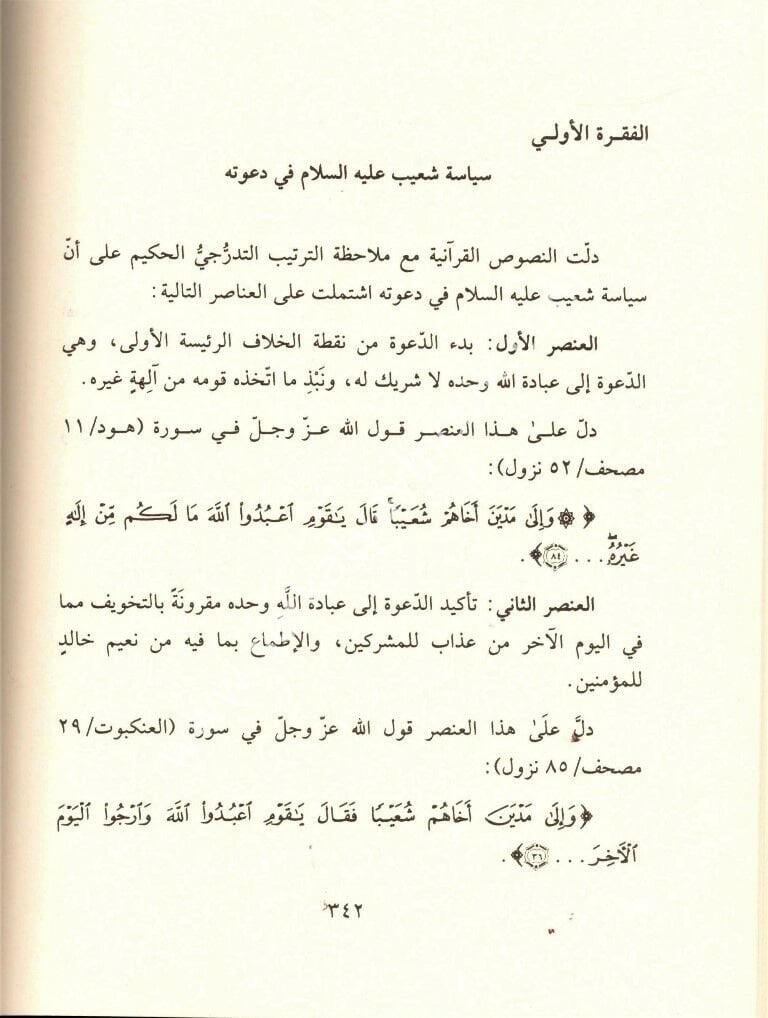 الفقـرة الأولـي
سياسة شعيب عليه السلام في دعوته
دلّت النصوص القرآنية مع ملاحظة الترتيب التدرُّجيُّ الحكيم على أنّ
سياسة شعيب عليه السلام في دعوته اشتملت على العناصر التالية:
العنصر الأول: بدء الدّعوة من نقطة الخلاف الرئيسة الأولى، وهي
الدّعوة إلى عبادة الله وحده لا شريك له، ونَبْذِ ما اتّخذه قومه من آلِهةٍ غيره.
دلّ علـىٰ هـذا العنصـر قول الله عـزّ وجـلّ فـي سـورة (هـود/ ١١
مصحف/ ٥٢ نزول):
﴿ ۞ وَإِلَىٰ مَدْيَنَ أَخَاهُمْ شُعَيْبًاۚ قَالَ يَٰقَوْمِ ٱعْبُدُوا۟ ٱللَّهَ مَا لَكُم مِّنْ إِلَٰهٍ
غَيْرُهُۥۖ . . . ٨٤ ﴾.
العنصر الثاني: تأكيد الدّعوة إلى عبادة اللَّهِ وحده مقرونَةً بالتخويف مما
في اليوم الآخر من عذاب للمشركين، والإطماع بما فيه من نعيم خالدٍ
للمؤمنين.
دلَّ علَىٰ هذا العنصر قول الله عزّ وجلّ في سورة (العنكبوت/ ٢٩
مصحف/ ٨٥ نزول):
﴿وَإِلَىٰ مَدْيَنَ أَخَاهُمْ شُعَيْبًا فَقَالَ يَٰقَوْمِ ٱعْبُدُوا۟ ٱللَّهَ وَٱرْجُوا۟ ٱلْيَوْمَ
ٱلْأٓخِرَ . . . ٣٦ ﴾.
٣٤٢